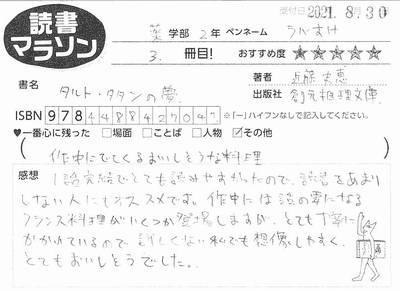 読書
マラソン
受付日 2021. 8. 30
薬 学部 2年 ペンネーム うがすけ
3. 冊目! おすすめ度 ★★★★★
書名 タルト・タタンの夢
著者 近藤史恵
出版社 創元推理文庫
ISBN 978 4488427047 ※「-」ハイフンなしで記入してください。
♥一番心に残った □場面 □ことば □人物 ☑その他
( 作中にでてくるおいしそうな料理
感想
1話完結でとても読みやすかったので、読書をあまり
しない人にもオススメです。作中には謎の要になる
フランス料理がいくつか登場しますが、とても丁寧に
かかれているので、詳しくない私でも想像しやすく、
とてもおいしそうでした。